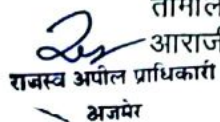 तामील
आराजी
राजस्व अपील प्राधिकारी
अजमेर